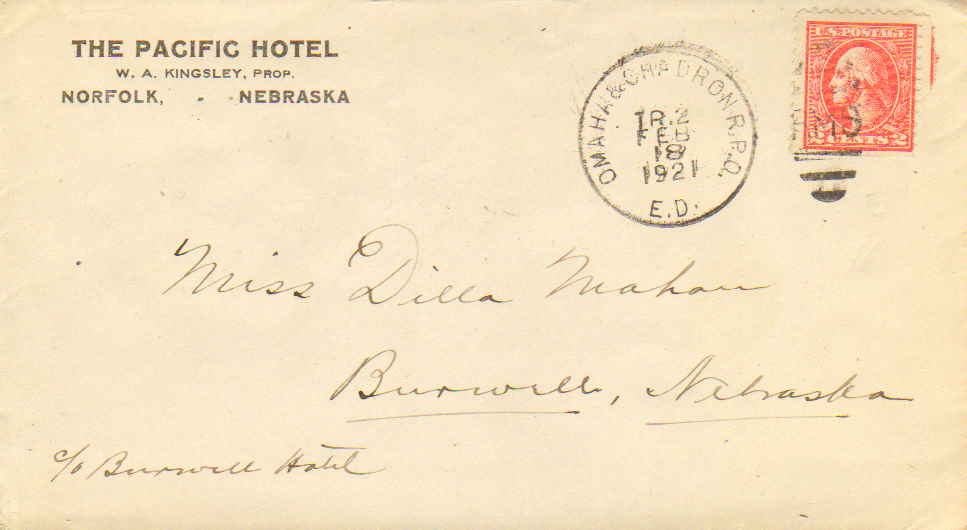 THE PACIFIC HOTEL
W. A. KINGSLEY, PROP.
NORFOLK, - NEBRASKA
OMAHA & CHADRON R.P.O.
TR.2
FEB
18
1921
E.D.
U.S. POSTAGE
2 CENTS 2
Miss Dilla Mahan
Burwell, Nebraska
c/o Burwell Hotel